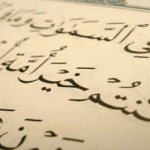 فِي السَّمَٰوَٰتِ وَمَا
كُنتُمْ خَيْرَ أُمَّةٍ